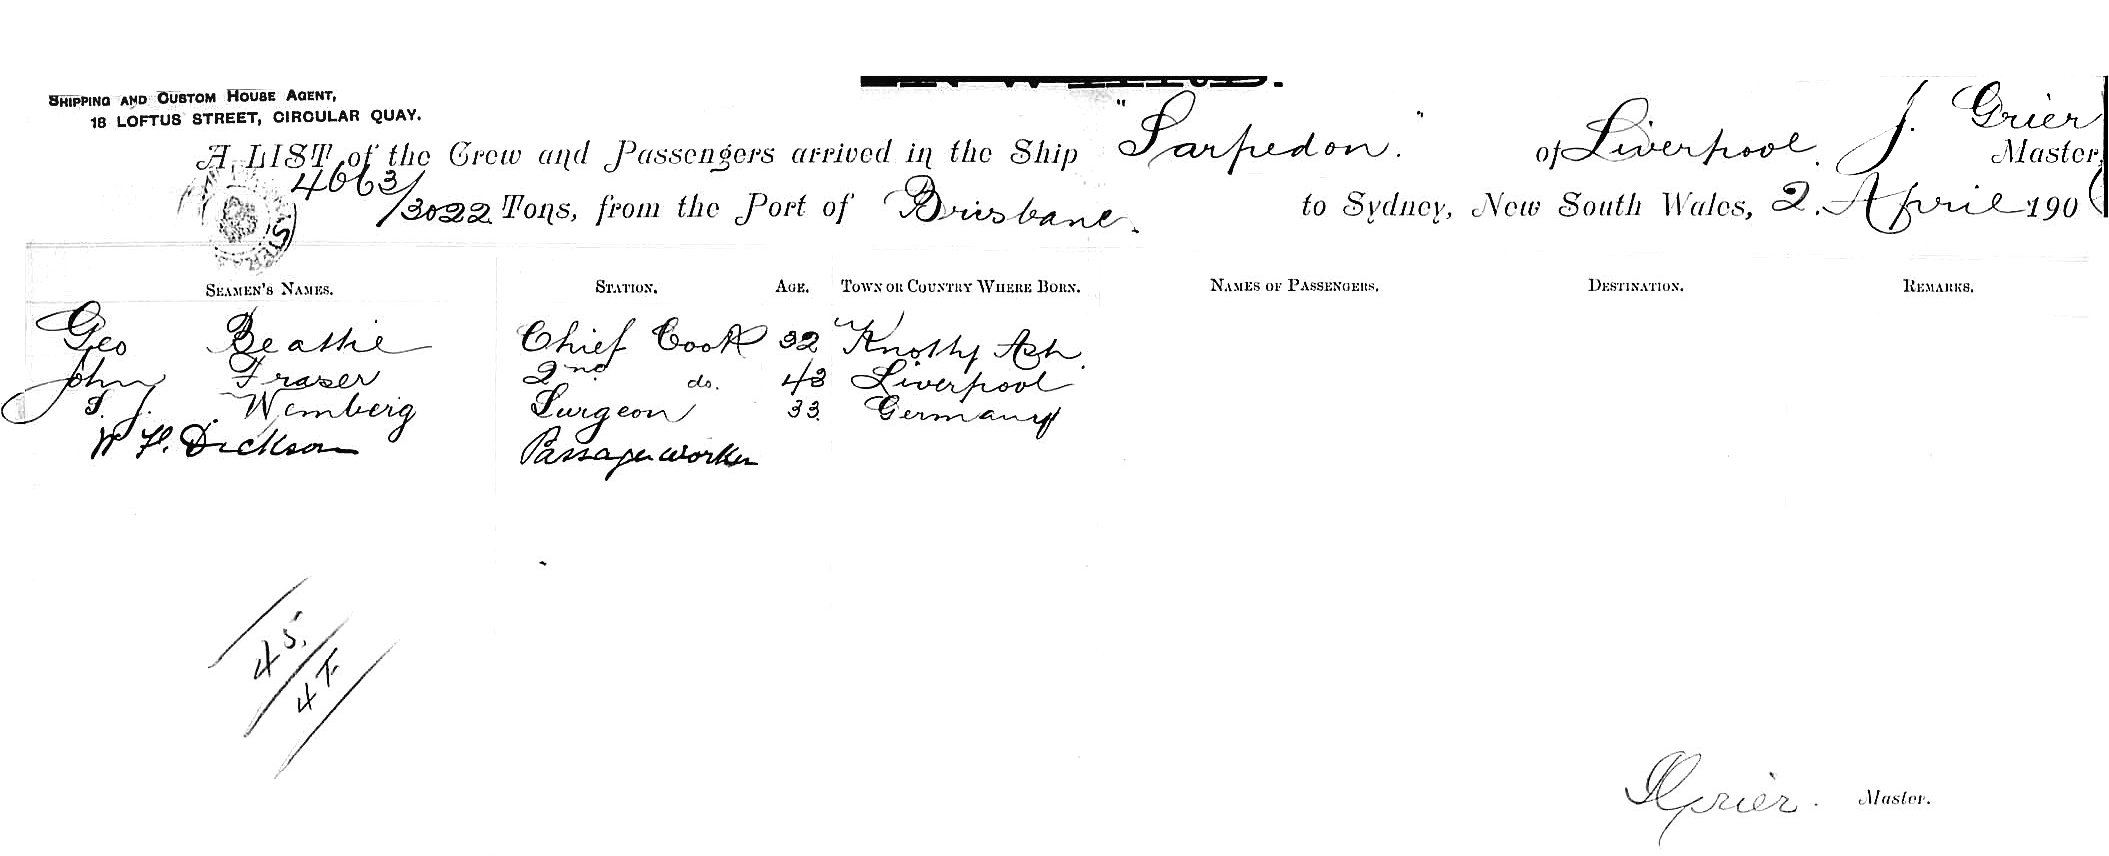 SHIPPING AND CUSTOM HOUSE AGENT,
18 LOFTUS STREET, CIRCULAR QUAY.
A LIST of the Crew and Passengers arrived in the Ship "Sarpedon." of Liverpool. J. Grier Master,
4663/3022 Tons, from the Port of Brisbane. to Sydney, New South Wales, 2. April 190
SEAMEN'S NAMES. STATION. AGE. TOWN OR COUNTRY WHERE BORN. NAMES OF PASSENGERS. DESTINATION. REMARKS.
Geo Beattie Chief Cook 32 Knotty Ash.
John Fraser 2nd do. 43 Liverpool
J. Wemberg Surgeon 33 Germany
W. H. Dickson Passage worker
45.
47.
JGrier. Master.